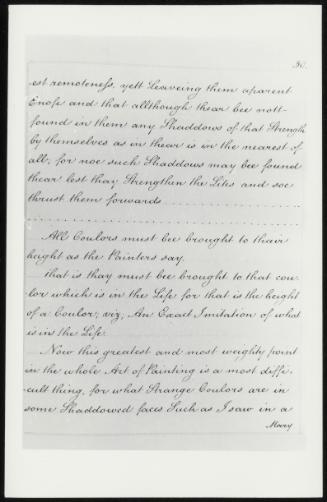 50.
est remoteness, yett Leaveing them aparent
Enose and that allthough thear bee nott
found in them any Shaddows of that Strength
by themselves as in thear is in the nearest of
all, for noe such Shaddows may bee found
thear lest thay Strengthen the Lites and soe
thrust them forwards
All Coulors must bee brought to thair
height as the Painters say.
that is thay must bee brought to that cou-
lor which is in the Life for that is the height
of a Coulor; viz, An Exact Imitation of what
is in the Life.
Now this greatest and most weighty point
in the whole Art of Painting is a most diffi-
cult thing, for what Strange Coulors are in
some Shaddowed faces Such as I saw in a